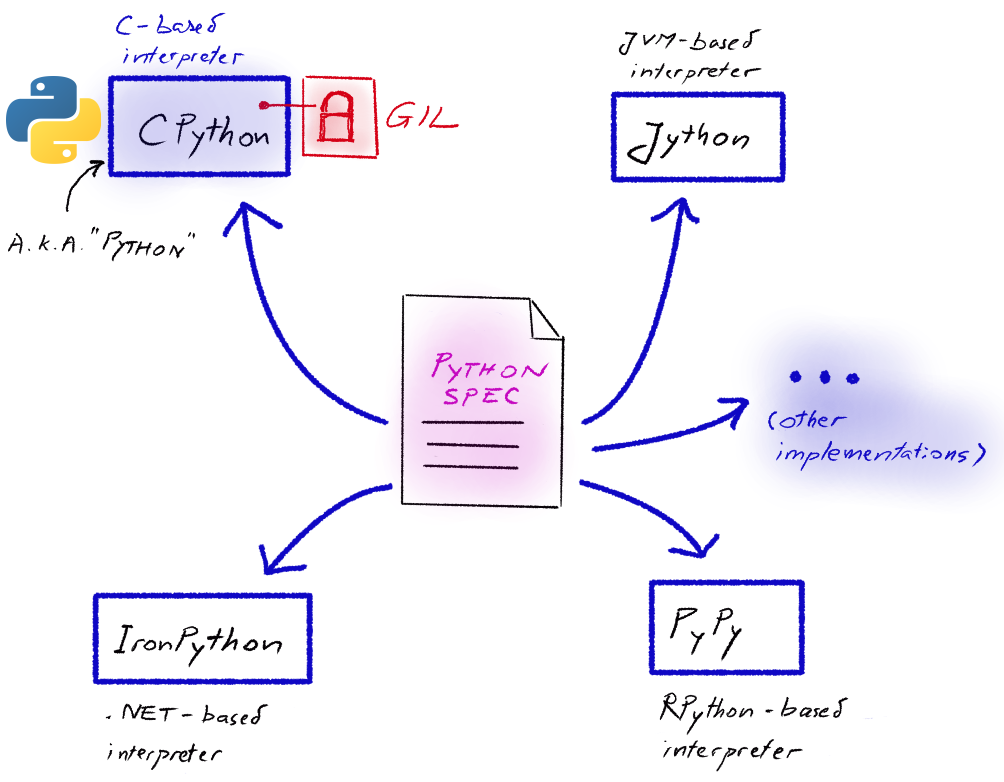 C-based
interpreter
CPython
GIL
A.K.A. "PYTHON"
JVM-based
interpreter
Jython
PYTHON
SPEC
...
(other
implementations)
IronPython
.NET-based
interpreter
PyPy
RPython-based
interpreter